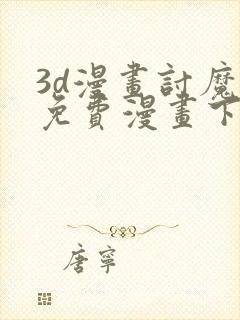 3d漫畫討魔
免費漫畫下
唐寧